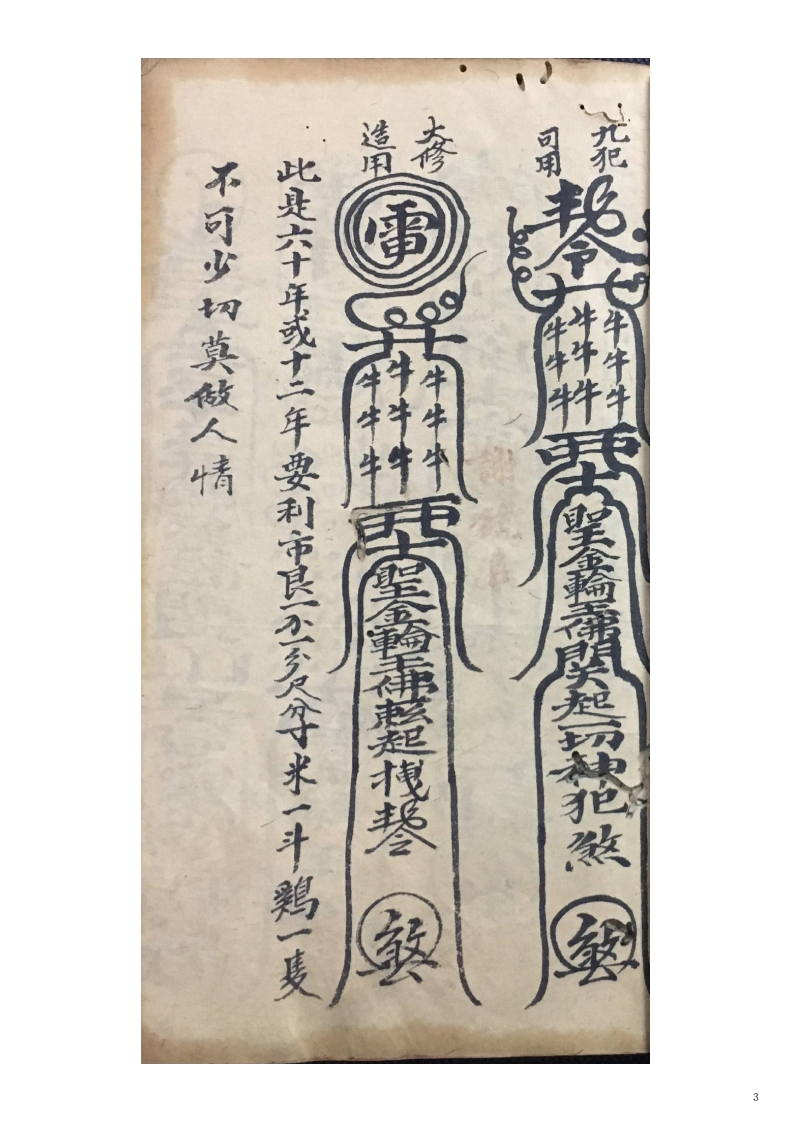 凡犯
可用
敕令
牛牛牛
牛牛牛
牛牛牛
聖金輪王佛開天起一切神犯煞
大修
造用
雷
牛牛牛
牛牛牛
牛牛牛
聖金輪王佛起拽敕令
此是六十年或十二年要利市良一分尺分寸米一斗鷄一隻
不可少切莫做人情
3